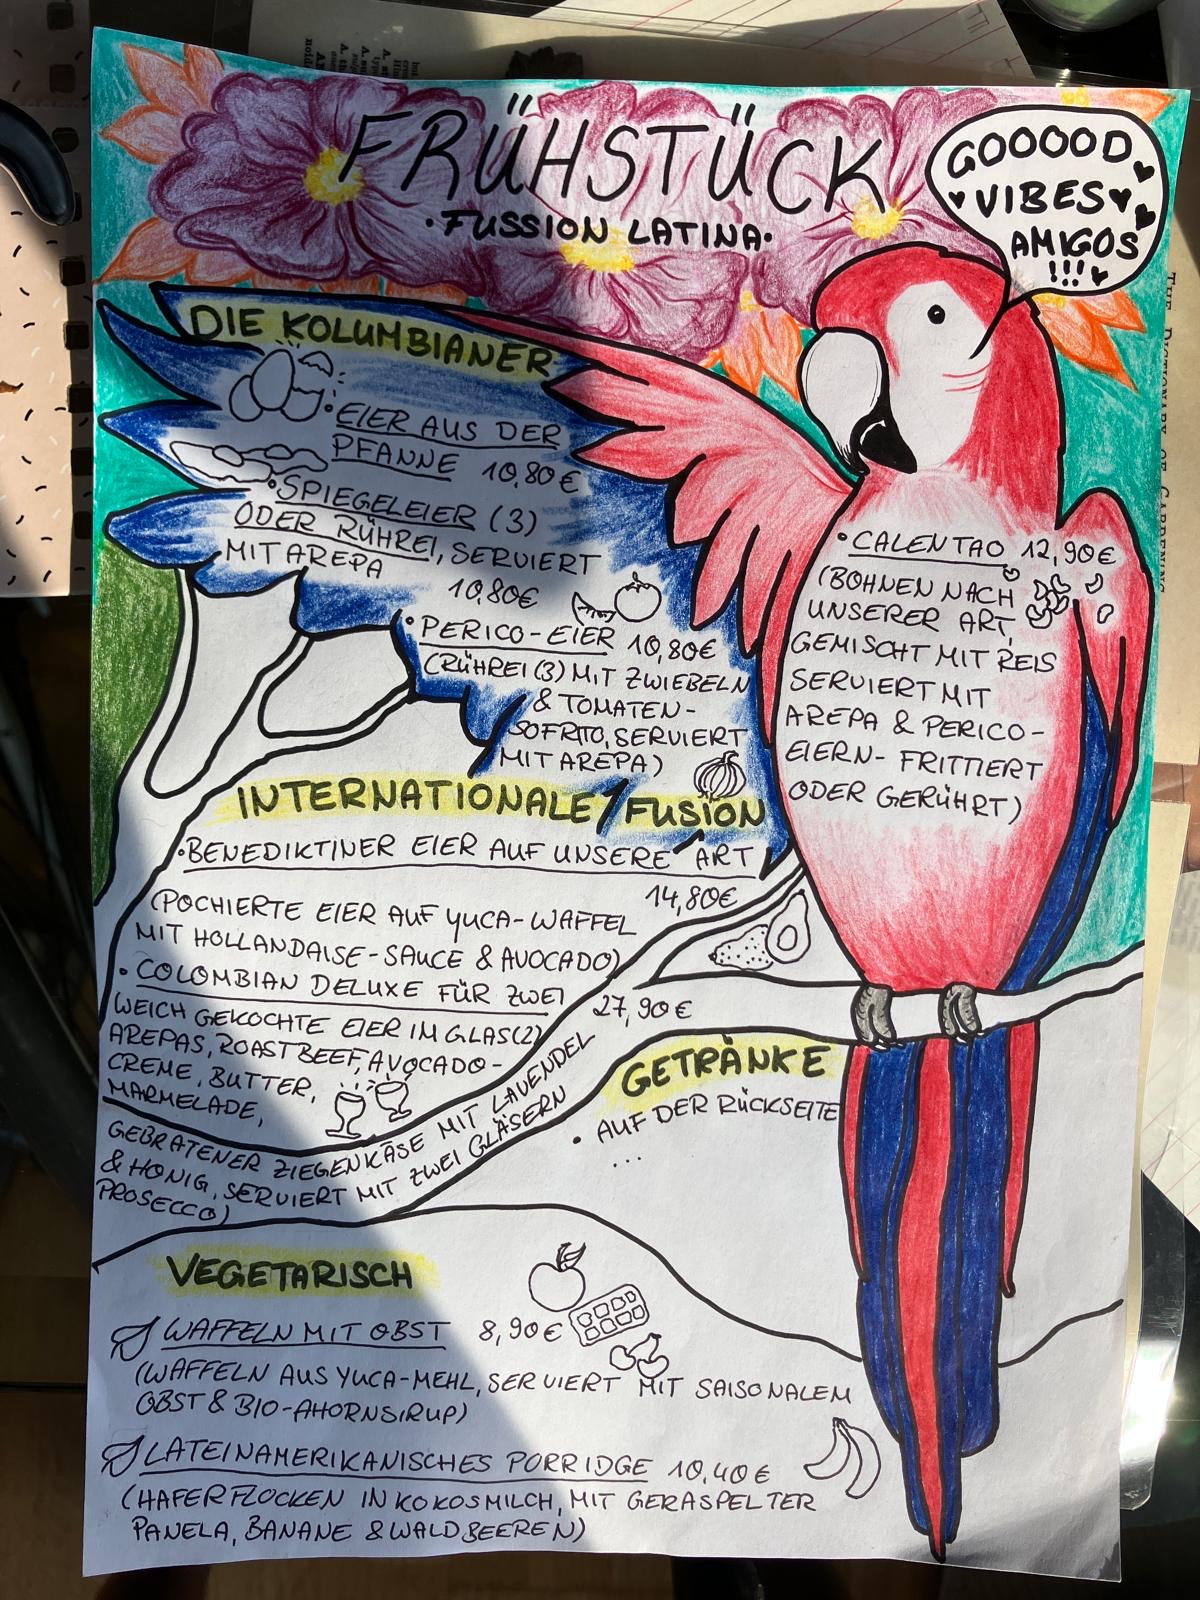 FRÜHSTÜCK
·FUSSION LATINA·
GOOOOD
VIBES
AMIGOS
!!!
DIE KOLUMBIANER
·EIER AUS DER
PFANNE 10,80€
·SPIEGELEIER (3)
ODER RÜHREI, SERVIERT
MIT AREPA
10,80€
·PERICO-EIER 10,80€
(RÜHREI (3) MIT ZWIEBELN
& TOMATEN-
SOFRITO, SERVIERT
MIT AREPA)
·CALENTAO 12,90€
(BOHNEN NACH
UNSERER ART,
GEMISCHT MIT REIS
SERVIERT MIT
AREPA & PERICO-
EIERN- FRITTIERT
ODER GERÜHRT)
INTERNATIONALE/FUSION
·BENEDIKTINER EIER AUF UNSERE ART
14,80€
(POCHIERTE EIER AUF YUCA-WAFFEL
MIT HOLLANDAISE-SAUCE & AVOCADO)
·COLOMBIAN DELUXE FÜR ZWEI
27,90€
WEICH GEKOCHTE EIER IM GLAS(2)
AREPAS, ROASTBEEF, AVOCADO-
CREME, BUTTER,
MARMELADE,
GEBRATENER ZIEGENKÄSE MIT LAVENDEL
& HONIG, SERVIERT MIT ZWEI GLÄSERN
PROSECCO)
GETRÄNKE
· AUF DER RÜCKSEITE
...
VEGETARISCH
WAFFELN MIT OBST 8,90€
(WAFFELN AUS YUCA-MEHL, SERVIERT MIT SAISONALEM
OBST & BIO-AHORNSIRUP)
LATEINAMERIKANISCHES PORRIDGE 10,40€
(HAFERFLOCKEN IN KOKOSMILCH, MIT GERASPELTER
PANELA, BANANE & WALDBEEREN)